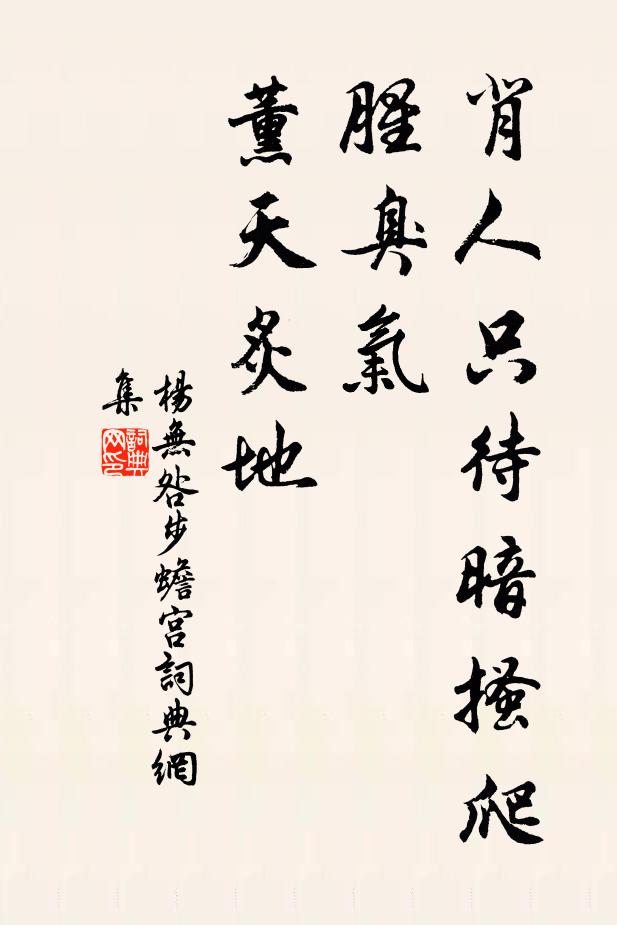 背人只待暗搔爬
腥臭氣
薰天炙地
楊無咎步蟾宮詞典網
集
詞典
网印